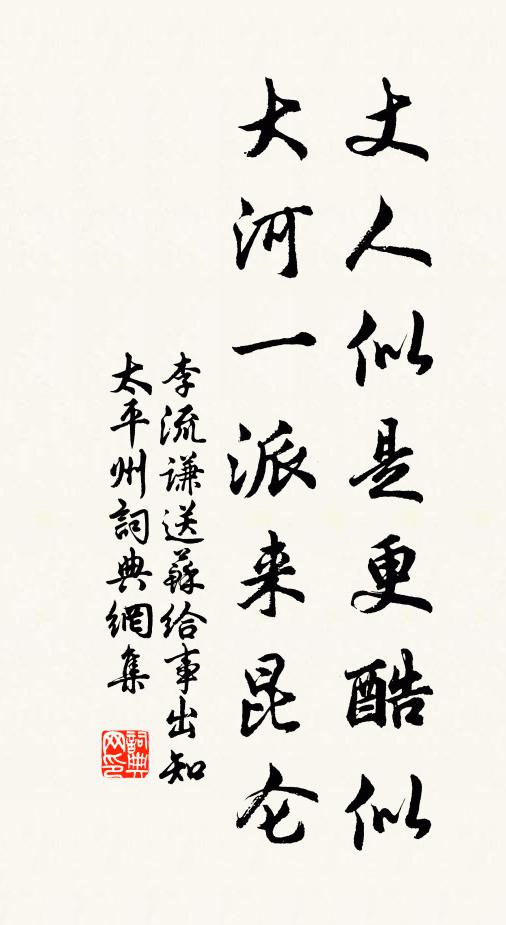 丈人似是更酷似
大河一派来昆仑
李流谦送蘇给事出知
太平州詞典網集
詞典网印